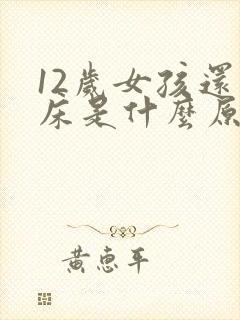 12歲女孩還
床是什麼原
黃惠平